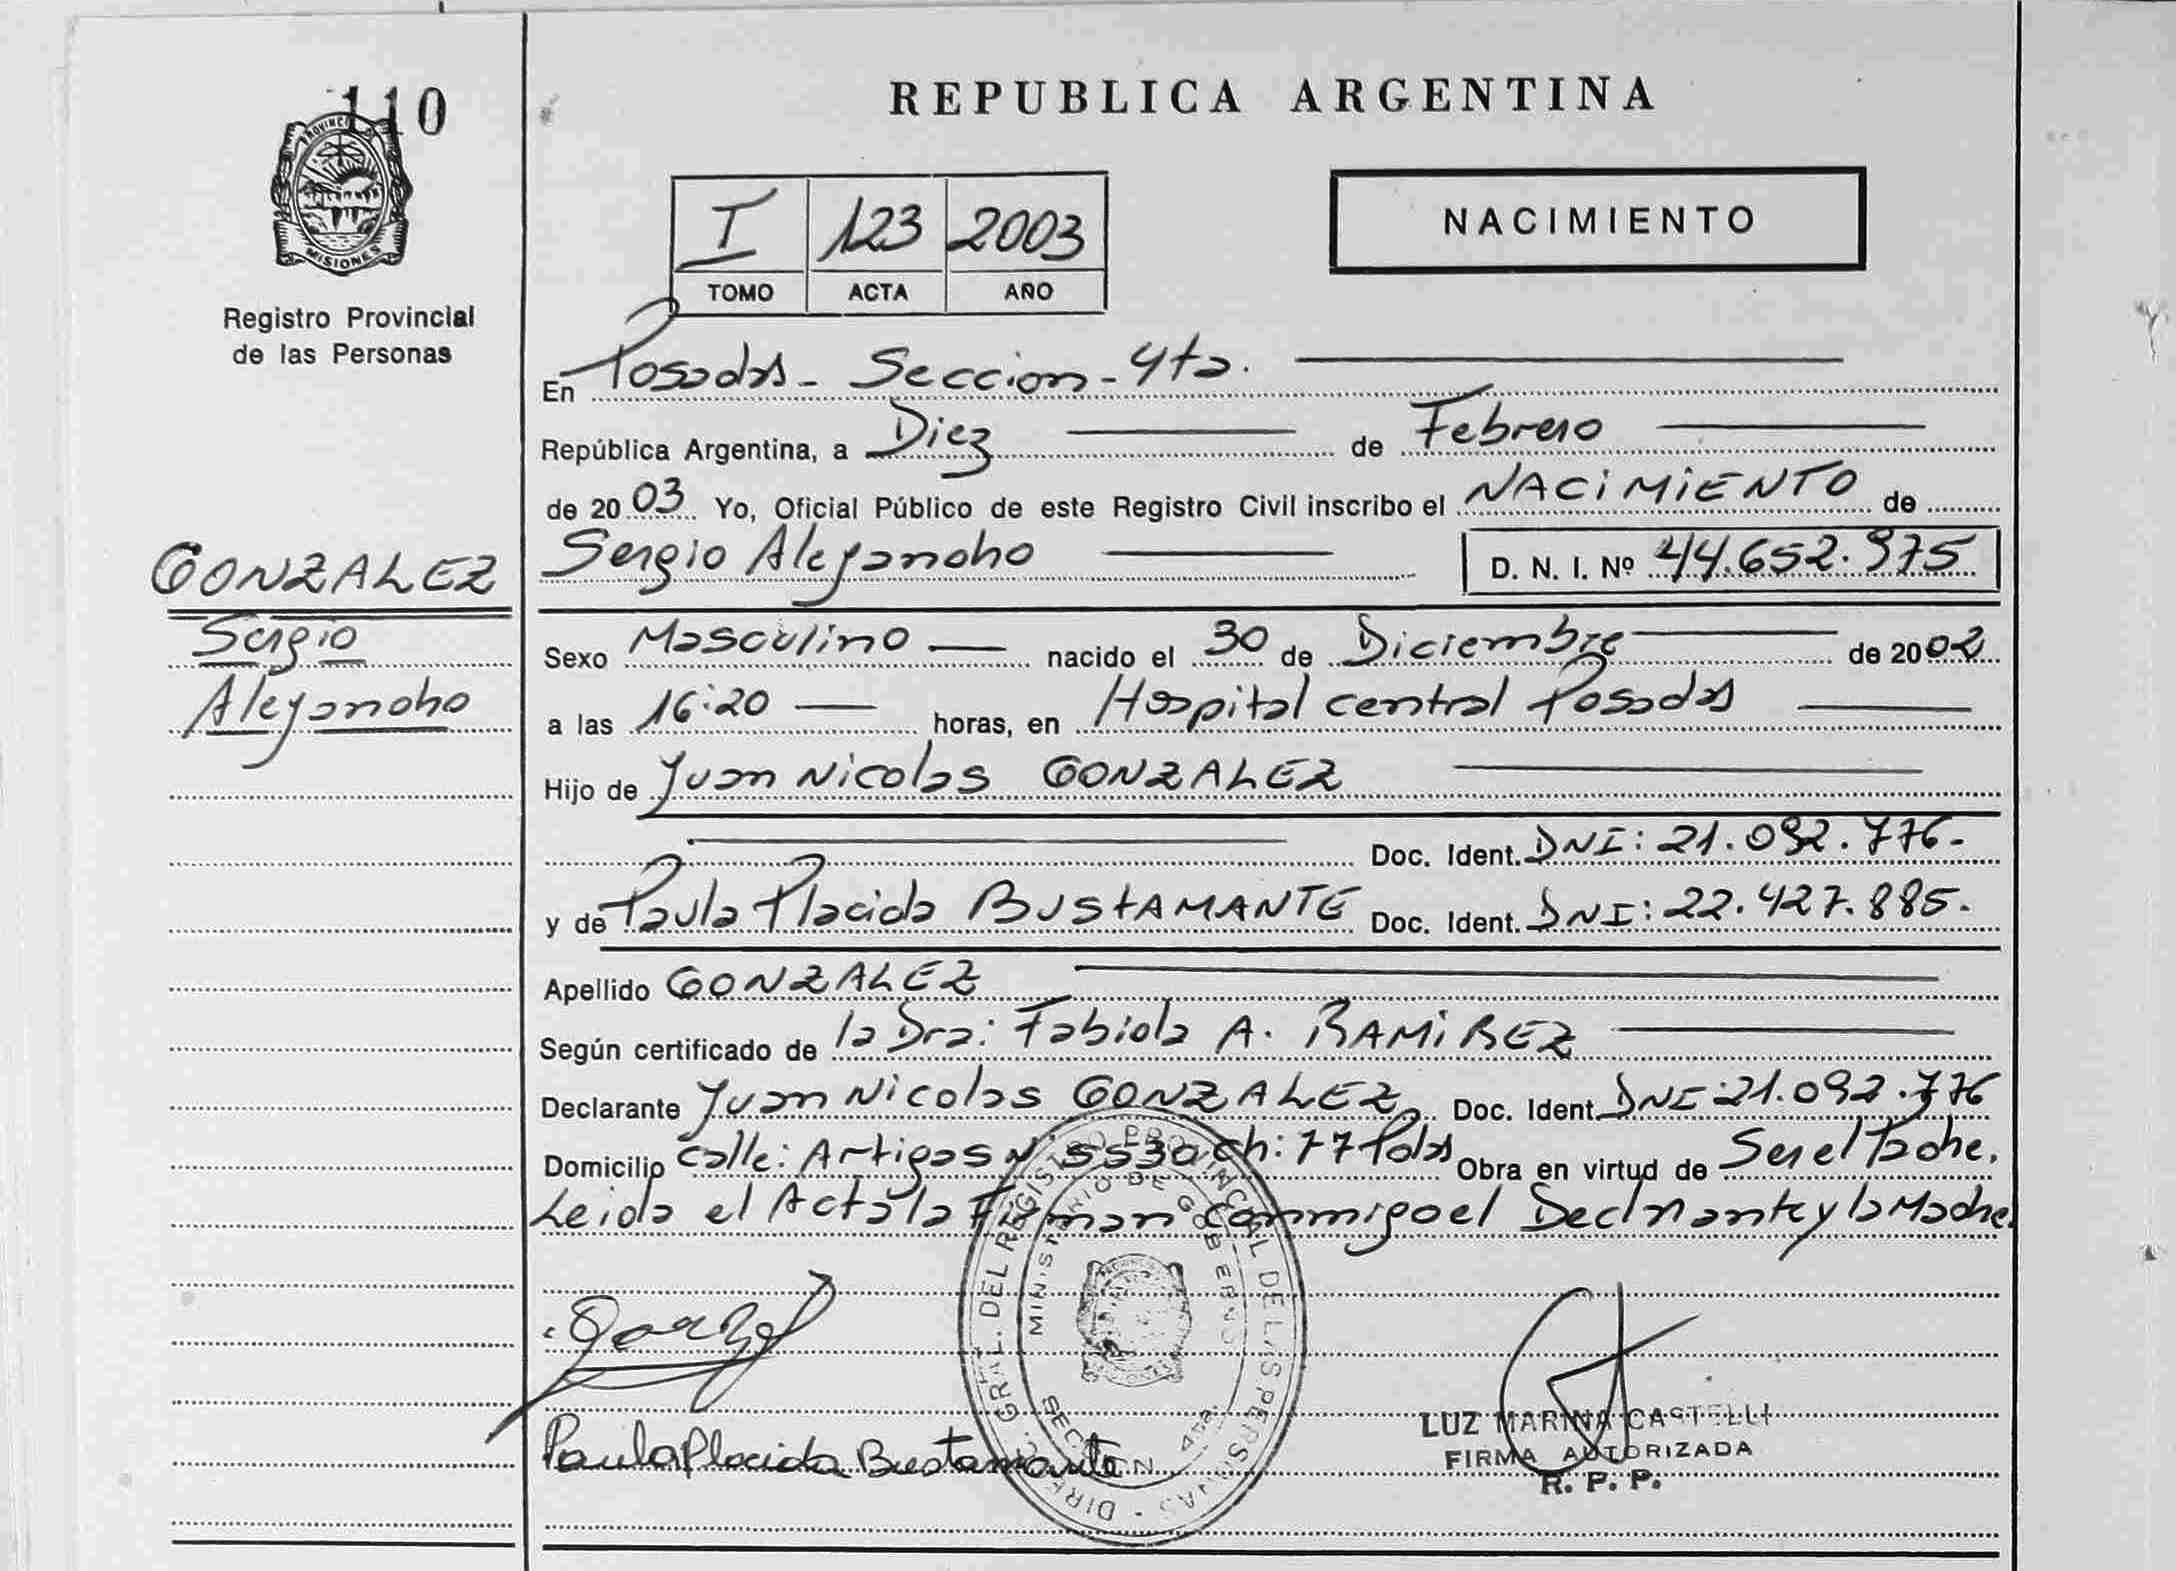 110
PROVINCIA DE
MISIONES
Registro Provincial
de las Personas
REPUBLICA ARGENTINA
I 123 2003
TOMO ACTA AÑO
NACIMIENTO
En Posadas - Seccion - 4ta.
República Argentina, a Diez de Febrero
de 2003 Yo, Oficial Público de este Registro Civil inscribo el NACIMIENTO de
Sergio Alejandro D. N. I. Nº 44.652.975
GONZALEZ
Sergio
Alejandro
Sexo Masculino nacido el 30 de Diciembre de 2002
a las 16:20 horas, en Hospital central Posadas
Hijo de Juan Nicolas GONZALEZ
Doc. Ident. DNI: 21.092.776.
y de Paula Placida BUSTAMANTE Doc. Ident. DNI: 22.427.885.
Apellido GONZALEZ
Según certificado de la Dra: Fabiola A. RAMIREZ
Declarante Juan Nicolas GONZALEZ Doc. Ident. DNI: 21.092.776
Domicilio calle: Artigas Nº 5530 ch: 77 Pdas Obra en virtud de Ser el Padre.
Leida el Acta la Firman conmigo el Declarante y la Madre.
DIREC. GRAL. DEL REGISTRO PROVINCIAL DE LAS PERSONAS
MINISTERIO DE GOBIERNO
SECCION 4ta.
Paula Placida Bustamante
LUZ MARINA CASTELLI
FIRMA AUTORIZADA
R. P. P.